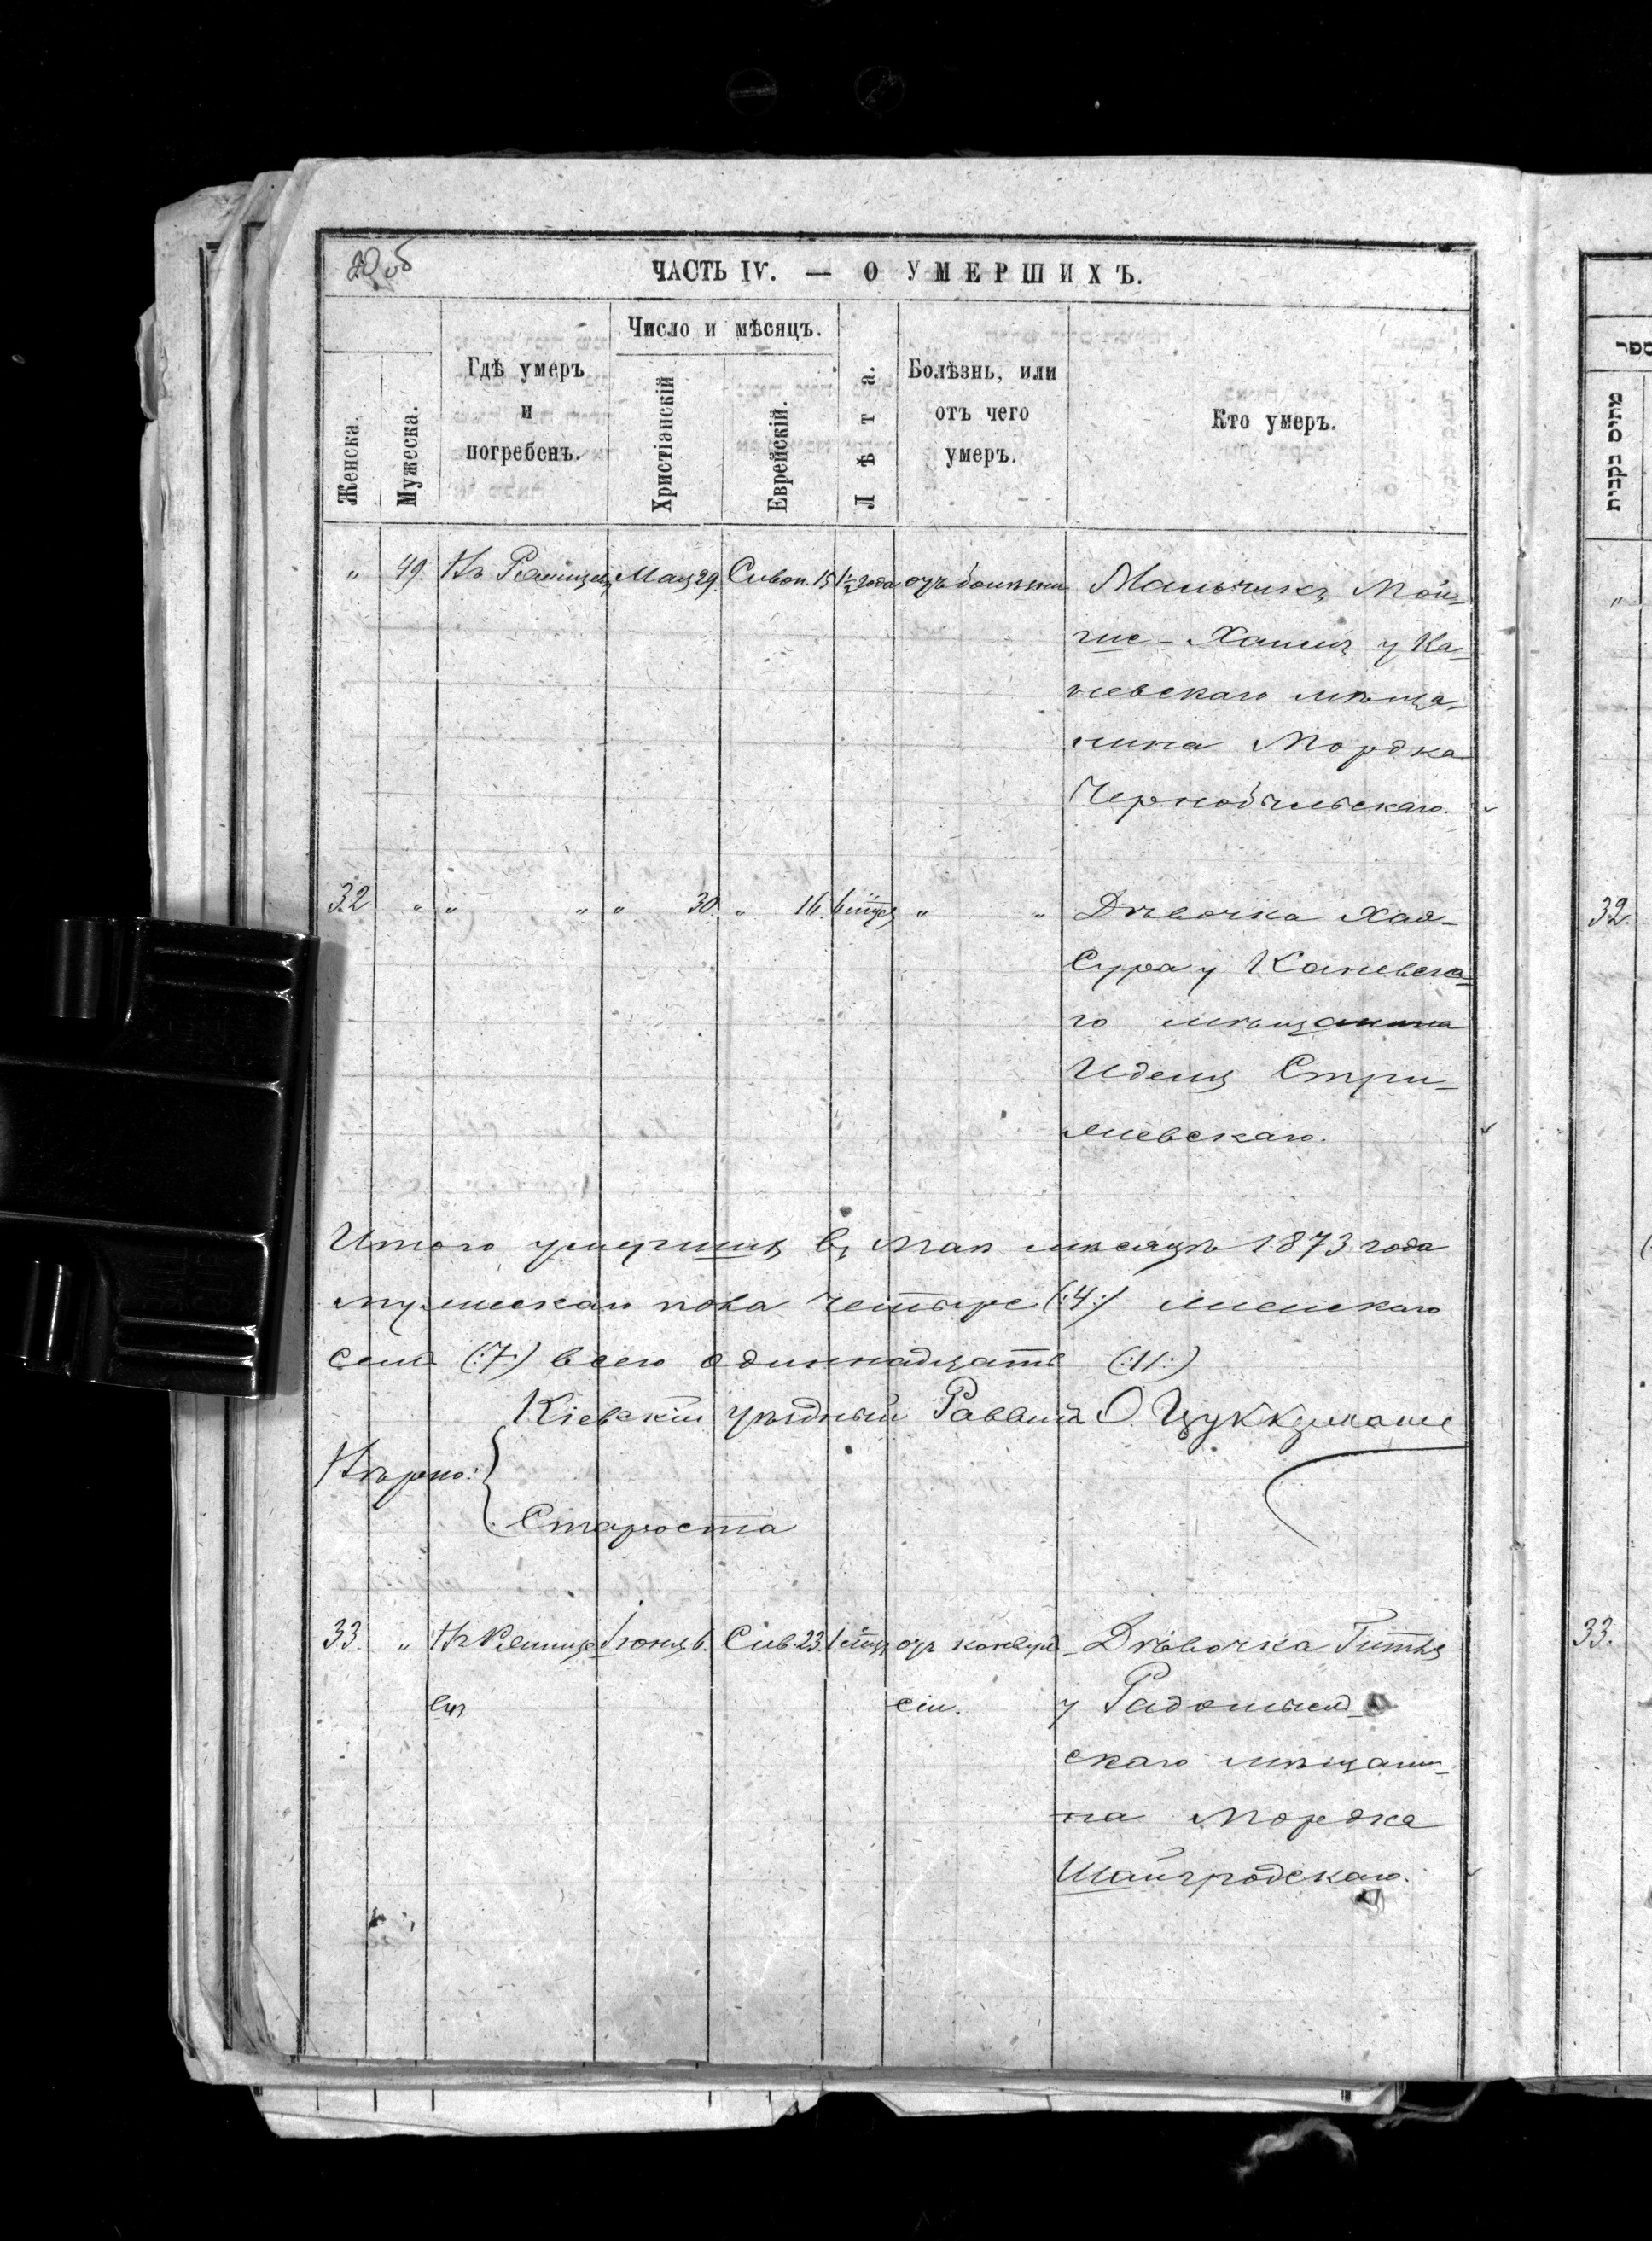 20 об
ЧАСТЬ IV. — О УМЕРШИХЪ.
Женска.
Мужеска.
Гдѣ умеръ
и
погребенъ.
Число и мѣсяцъ.
Христіанскій
Еврейскій.
Лѣта.
Болѣзнь, или
отъ чего
умеръ.
Кто умеръ.
„ 49. Въ Ржищевѣ Мая 29. Сивон. 15 1½ года отъ болѣзни Мальчикъ Мой-
ше-Хаимъ у Ка-
невскаго мѣща-
нина Мордка
Чернобыльскаго.
32 „ „ „ „ 30. „ 16. 6 мѣсяц „ „ Дѣвочка Хая-
Сура у Каневска-
го мѣщанина
Иделя Стри-
жевскаго.
Итого умершихъ въ Маѣ мѣсяцѣ 1873 года
мужескаго пола четыре (:4:) женскаго
семь (:7:) всего одиннадцать (:11:)
Кіевскій уѣздный Раввинъ О. Цуккерманъ
Вѣрно:
Староста
33. „ Въ Ржище Іюня 6. Сив. 23. 1 мѣсяц отъ конвул Дѣвочка Гитля
вѣ сіи. у Радомысль
скаго мѣщани-
на Мордка
Шайгродскаго.
ספר
מתים נקבות
„
32.
33.